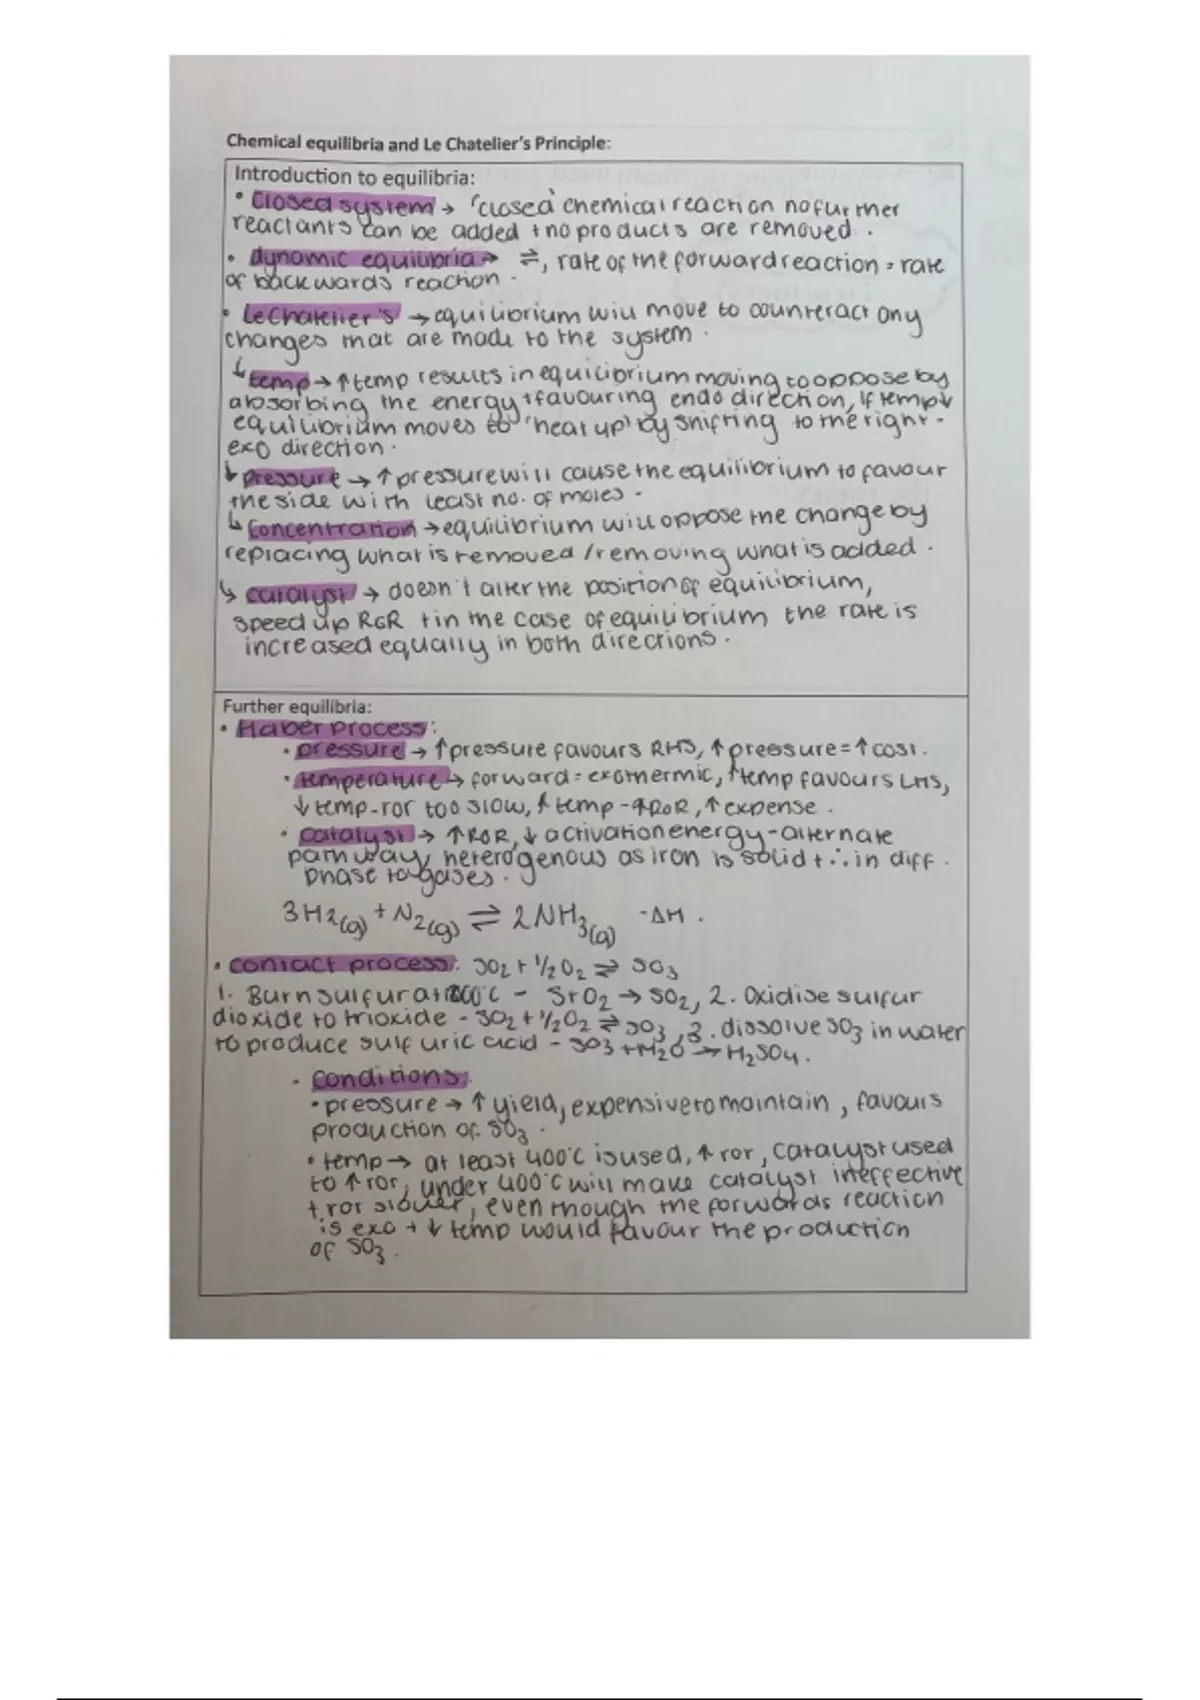 Chemical equilibria and Le Chatelier's Principle:
Introduction to equilibria:
• Closed system → 'closed' chemical reaction no further
reactants can be added + no products are removed.
• dynamic equilibria → ⇌, rate of the forward reaction = rate
of backwards reaction.
• Le Chatelier's → equilibrium will move to counteract any
changes that are made to the system.
↳ temp → ↑ temp results in equilibrium moving to oppose by
absorbing the energy + favouring endo direction, If temp ↓
equilibrium moves to 'heat up' by shifting to the right -
exo direction.
↳ pressure → ↑ pressure will cause the equilibrium to favour
the side with least no. of moles.
↳ Concentration → equilibrium will oppose the change by
replacing what is removed / removing what is added.
↳ catalyst → doesn't alter the position of equilibrium,
speed up ROR + in the case of equilibrium the rate is
increased equally in both directions.
Further equilibria:
• Haber process:
• pressure → ↑ pressure favours RHS, ↑ pressure = ↑ cost.
• temperature → forward = exothermic, ↑ temp favours LHS,
↓ temp - ror too slow, ↑ temp - ↑ROR, ↑ expense.
• catalyst → ↑ ROR, ↓ activation energy - alternate
pathway, heterogenous as iron is solid + ∴ in diff.
phase to gases.
3H2(g) + N2(g) ⇌ 2NH3(g) -ΔH.
• contact process: SO2 + ½O2 ⇌ SO3
1. Burn sulfur at °C - S + O2 → SO2, 2. Oxidise sulfur
dioxide to trioxide - SO2 + ½O2 ⇌ SO3, 3. dissolve SO3 in water
to produce sulfuric acid - SO3 + H2O → H2SO4.
• Conditions:
• pressure → ↑ yield, expensive to maintain, favours
production of SO3.
• temp → at least 400°C is used, ↑ ror, catalyst used
to ↑ ror, under 400°C will make catalyst ineffective
+ ror slower, even though the forwards reaction
is exo + ↓ temp would favour the production
of SO3.